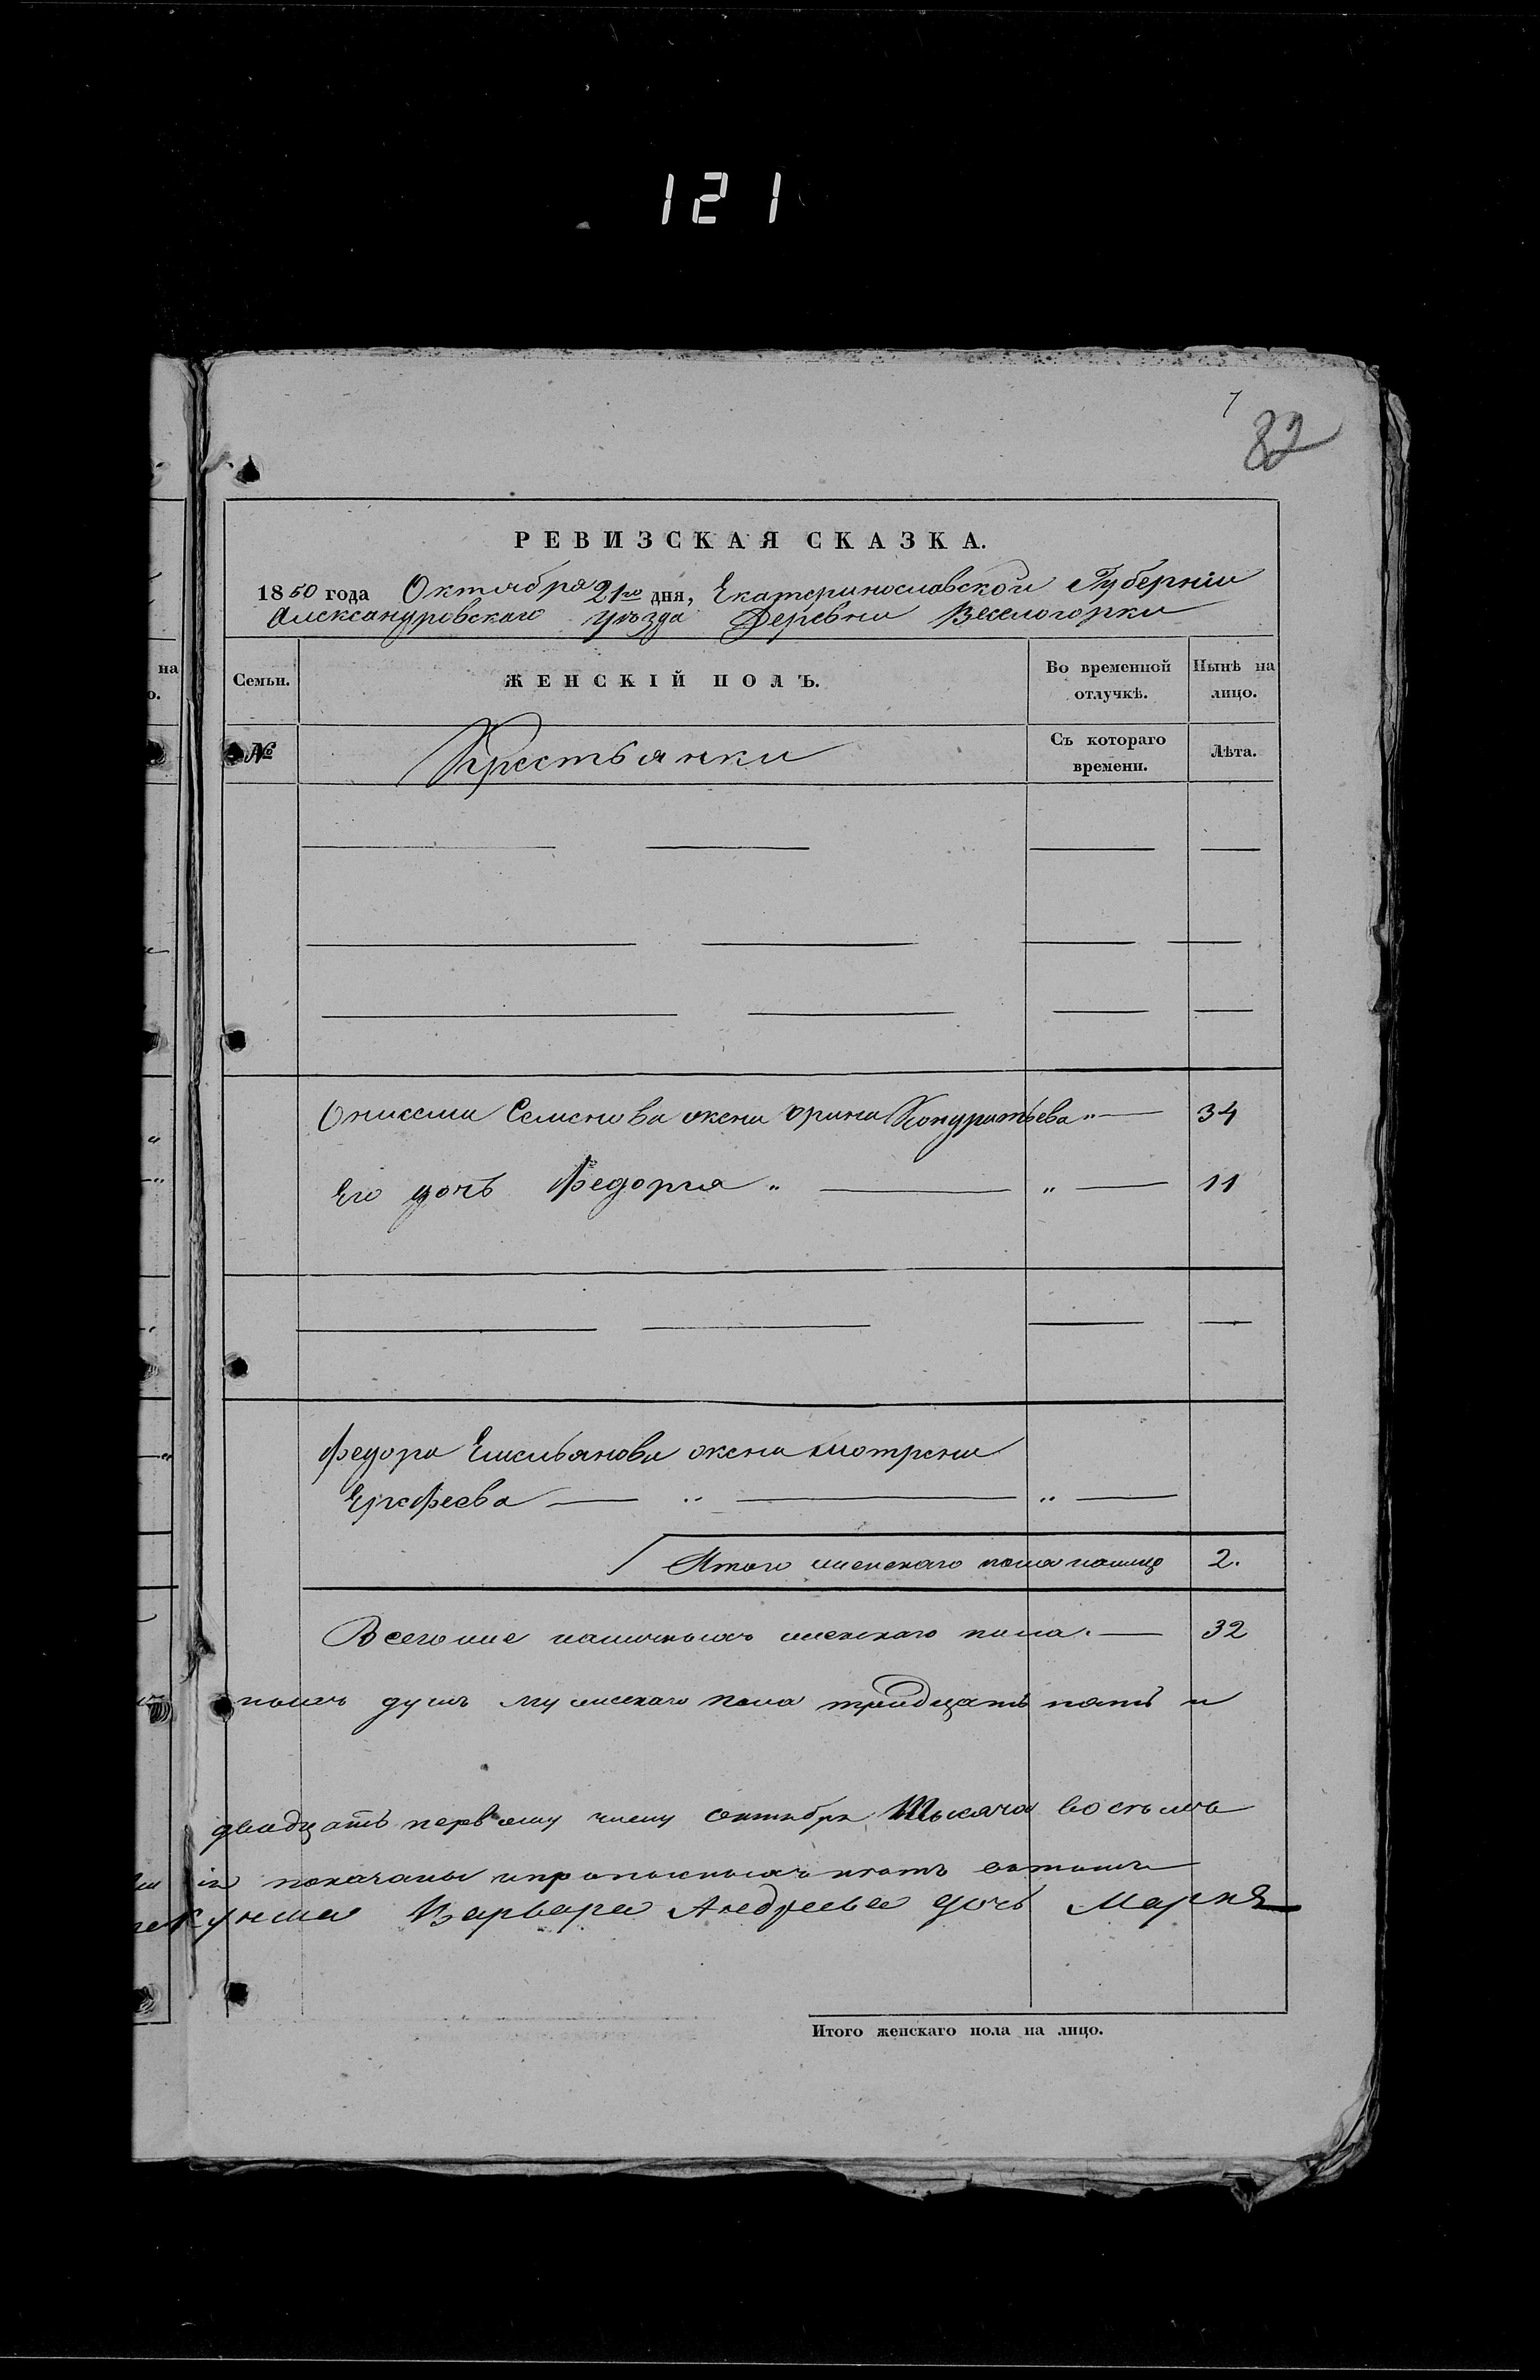 121
82
РЕВИЗСКАЯ СКАЗКА.
1850 года Октября 21го дня, Екатеринославской Губерніи
Александровскаго уѣзда Деревни Веселогорки
на
Семьи.
ЖЕНСКІЙ ПОЛЪ.
Во временной отлучкѣ.
Нынѣ на лицо.
№
Крестьянки
Съ котораго времени.
Лѣта.
Онисима Семенова жена Орина Кондратьева " — 34
Его дочь Федорка " — " — 11
Федора Емельянова жена Мотрена
Ерофеева — " — " —
Итого женскаго пола налицо 2.
Всего же наличныхъ женскаго пола. — 32
душъ мужскаго пола тридцать пять и
двадцать первому числу октября Тысяча восемь
показаны и прописныхъ нѣтъ
Варвара Андреева дочь
Итого женскаго пола на лицо.